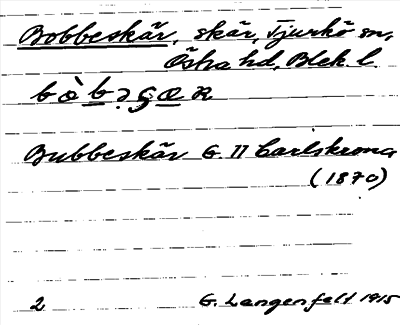 Bobbeskär, skär, Tjurkö sn,
Östra hd, Blek. l.
Bubbeskär G. 11 Carlskrona
(1870)
2 G. Langenfelt 1915